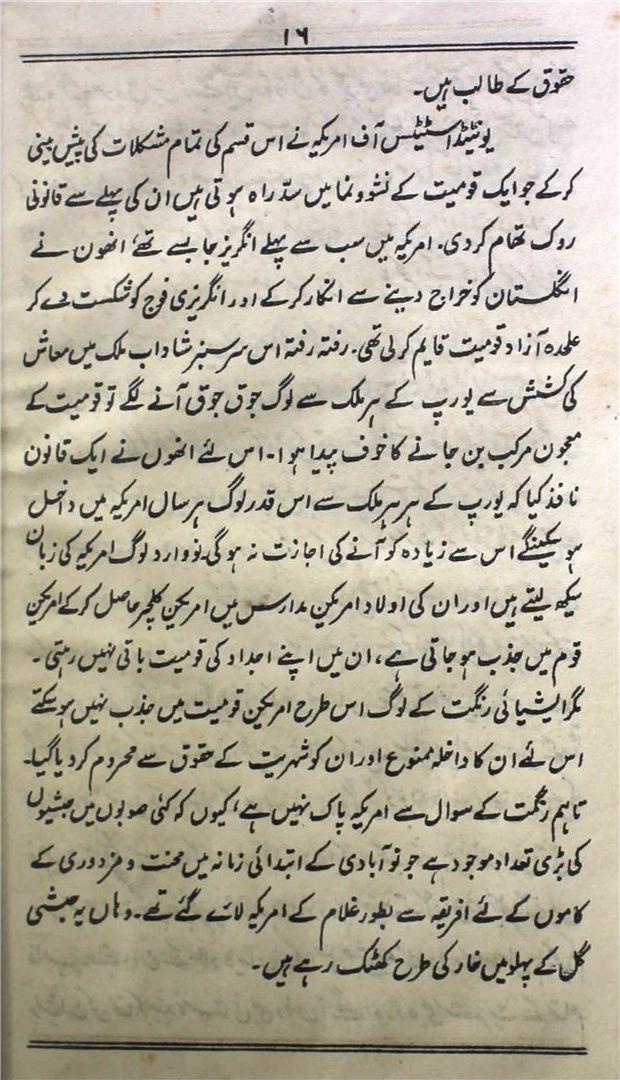 ۱۶
حقوق کے طالب ہیں۔
یونٹیڈ اسٹیٹس آف امریکہ نے اس قسم کی تمام مشکلات کی پیش بینی
کرکے جو ایک قومیت کے نشوونما میں سدّراہ ہوتی ہیں ان کی پہلے سے قانونی
روک تھام کردی۔ امریکہ میں سب سے پہلے انگریز جا بسے تھے، انھوں نے
انگلستان کو خراج دینے سے انکار کرکے اور انگریزی فوج کو شکست دے کر
علحدہ آزاد قومیت قایم کرلی تھی۔ رفتہ رفتہ اس سرسبز شاداب ملک میں معاش
کی کشش سے یورپ کے ہر ملک سے لوگ جوق جوق آنے لگے تو قومیت کے
معجون مرکب بن جانے کا خوف پیدا ہوا۔ اس لئے انھوں نے ایک قانون
نافذ کیا کہ یورپ کے ہر ہر ملک سے اس قدر لوگ ہر سال امریکہ میں داخل
ہوسکینگے اس سے زیادہ کو آنے کی اجازت نہ ہوگی۔ نووارد لوگ امریکہ کی زبان
سیکھ لیتے ہیں اور ان کی اولاد امریکن مدارس میں امریکن کلچر حاصل کرکے امریکن
قوم میں جذب ہوجاتی ہے، ان میں اپنے اجداد کی قومیت باقی نہیں رہتی۔
مگر ایشیائی رنگت کے لوگ اس طرح امریکن قومیت میں جذب نہیں ہوسکتے
اس لئے ان کا داخلہ ممنوع اور ان کو شہریت کے حقوق سے محروم کردیا گیا۔
تاہم رنگت کے سوال سے امریکہ پاک نہیں ہے، کیوں کہ کئی صوبوں میں حبشیوں
کی بڑی تعداد موجود ہے جو نوآبادی کے ابتدائی زمانہ میں محنت و مزدوری کے
کاموں کے لئے افریقہ سے بطور غلام کے امریکہ لائے گئے تھے۔ وہاں یہ حبشی
گل کے پہلو میں خار کی طرح کھٹک رہے ہیں۔